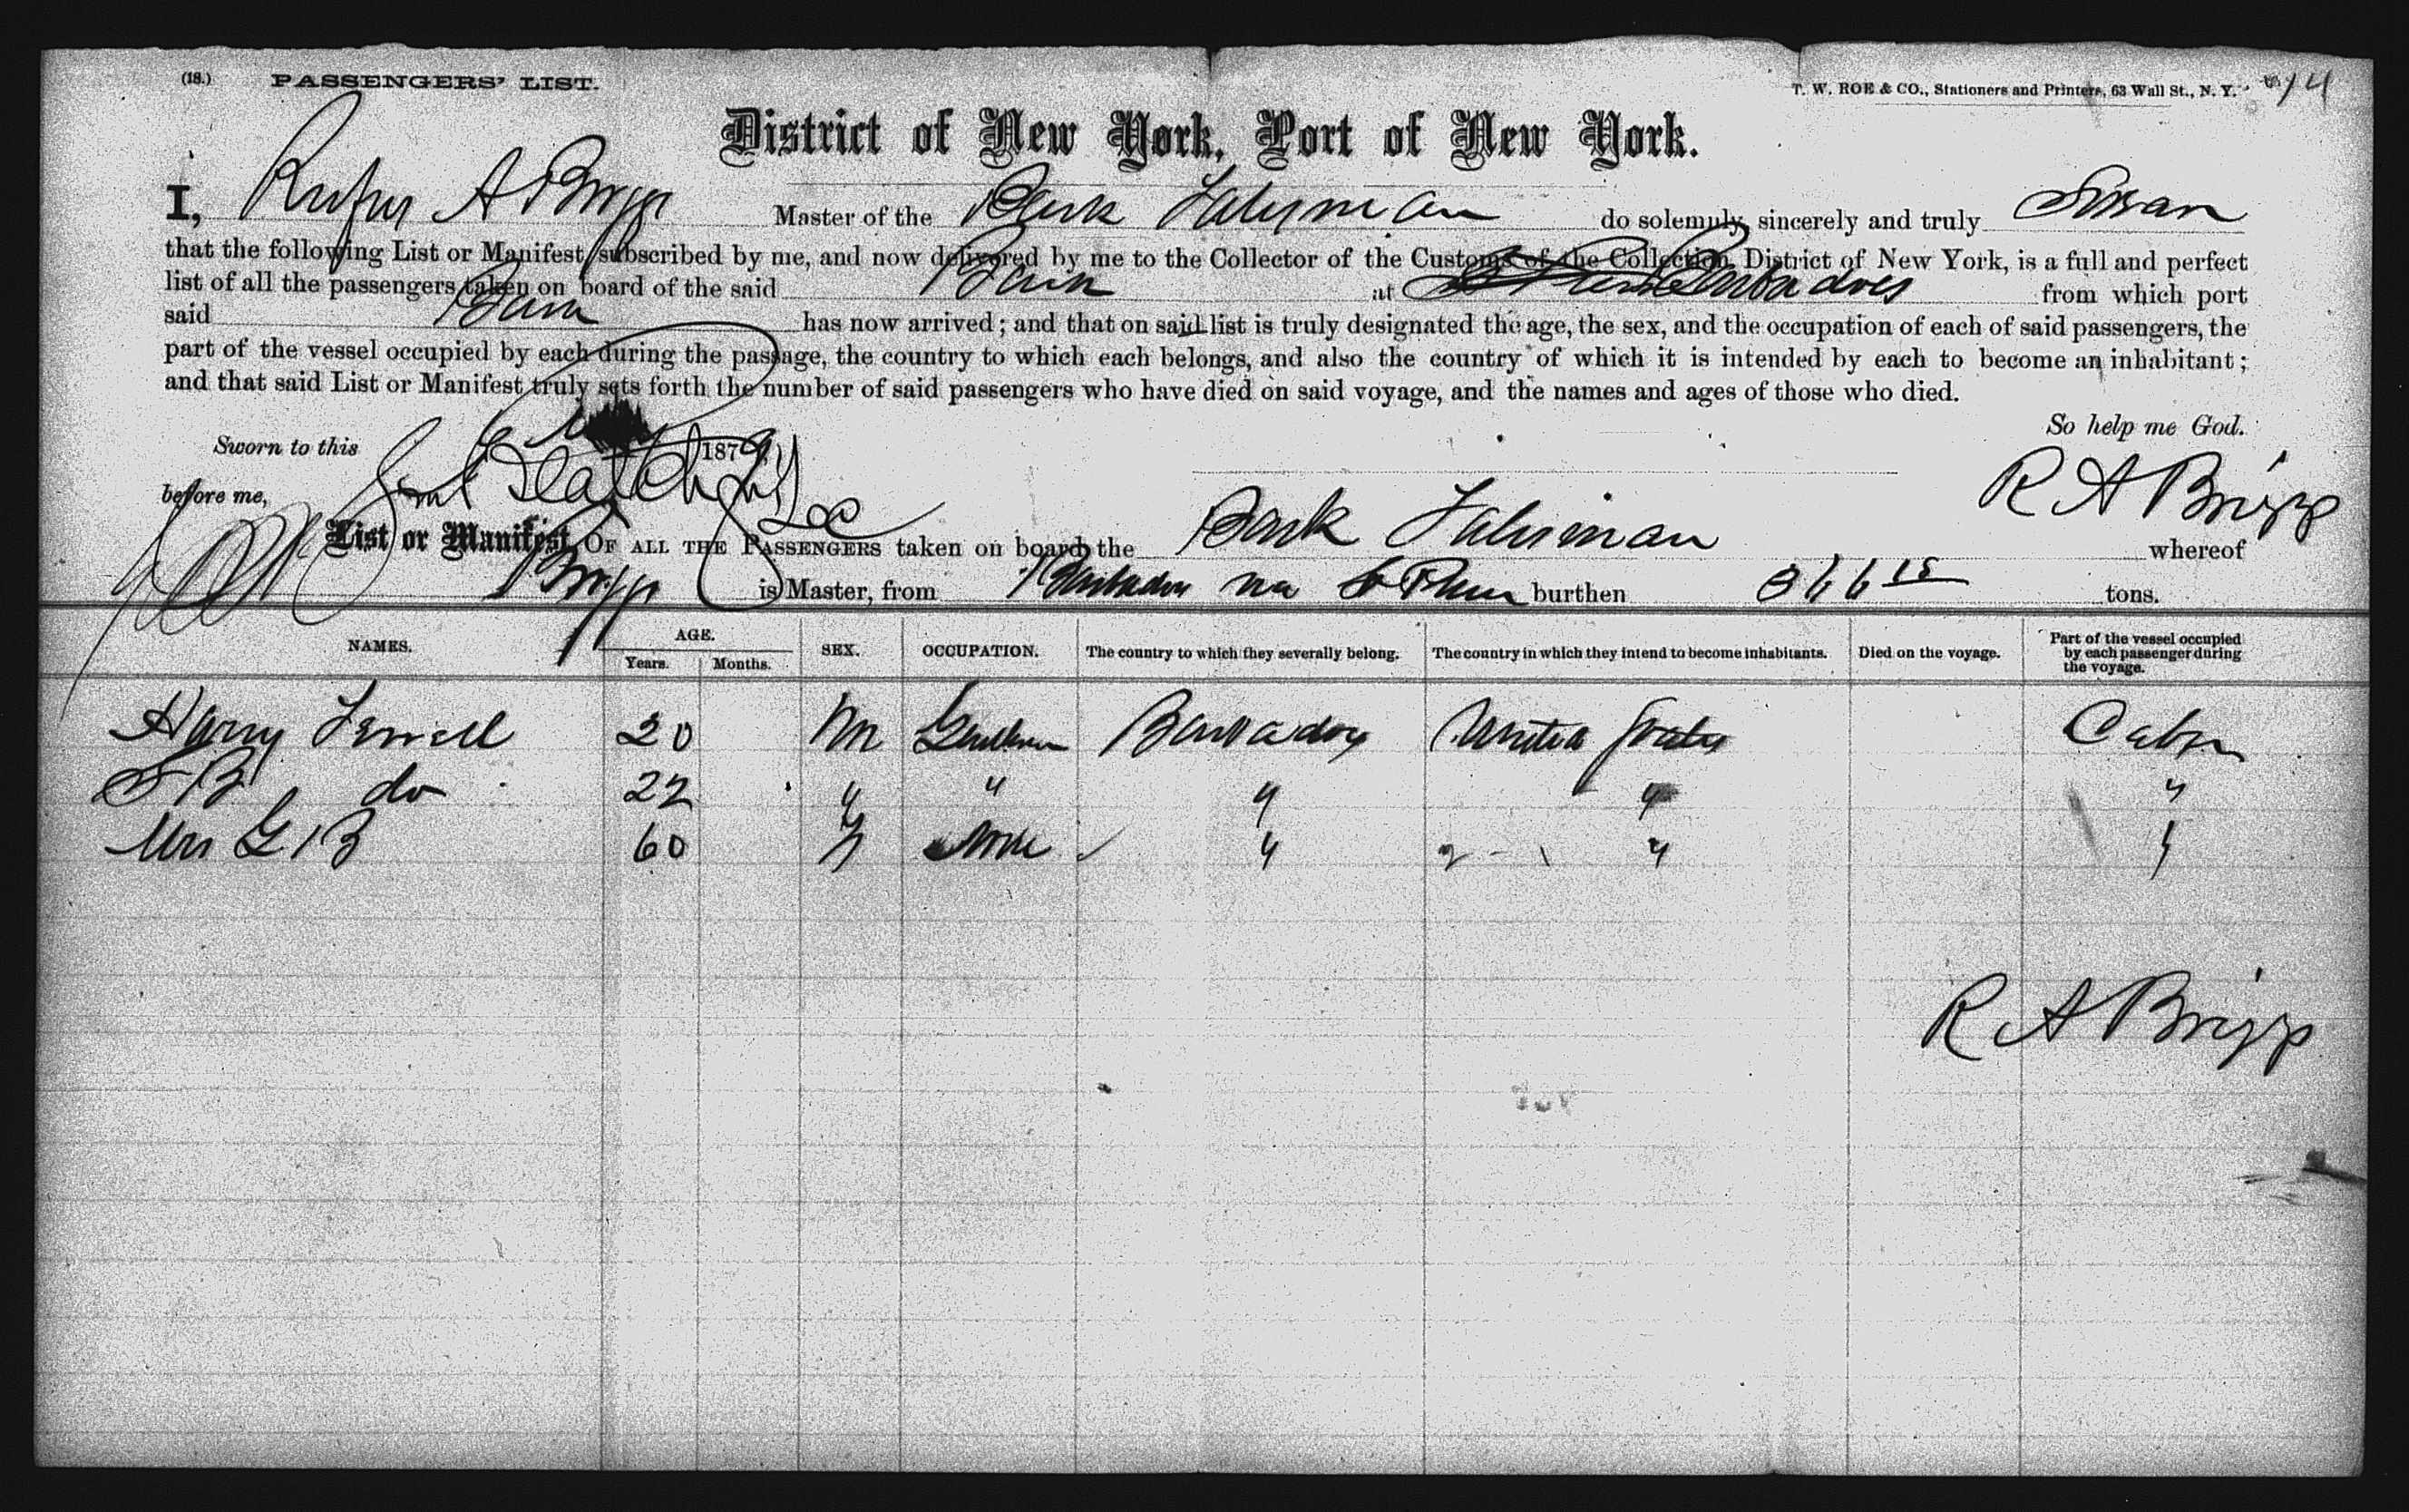 (18.) PASSENGERS' LIST.
T. W. ROE & CO., Stationers and Printers, 63 Wall St., N. Y. 14
District of New York, Port of New York.
I, Rufus A Briggs Master of the Bark Talisman do solemnly, sincerely and truly Swear
that the following List or Manifest, subscribed by me, and now delivered by me to the Collector of the Customs of the Collection District of New York, is a full and perfect
list of all the passengers taken on board of the said Bark at Barbadoes from which port
said Bark has now arrived; and that on said list is truly designated the age, the sex, and the occupation of each of said passengers, the
part of the vessel occupied by each during the passage, the country to which each belongs, and also the country of which it is intended by each to become an inhabitant;
and that said List or Manifest truly sets forth the number of said passengers who have died on said voyage, and the names and ages of those who died.
So help me God.
Sworn to this 1879
before me,
R A Briggs
List or Manifest OF ALL THE PASSENGERS taken on board the Bark Talisman whereof
Briggs is Master, from Barbadoes via burthen 366 15 tons.
NAMES. AGE. Years. Months. SEX. OCCUPATION. The country to which they severally belong. The country in which they intend to become inhabitants. Died on the voyage. Part of the vessel occupied by each passenger during the voyage.
Harry 20 M Gentleman Barbadoes United States Cabin
S B do 22 " " " " "
Mrs G B 60 None " " "
R A Briggs